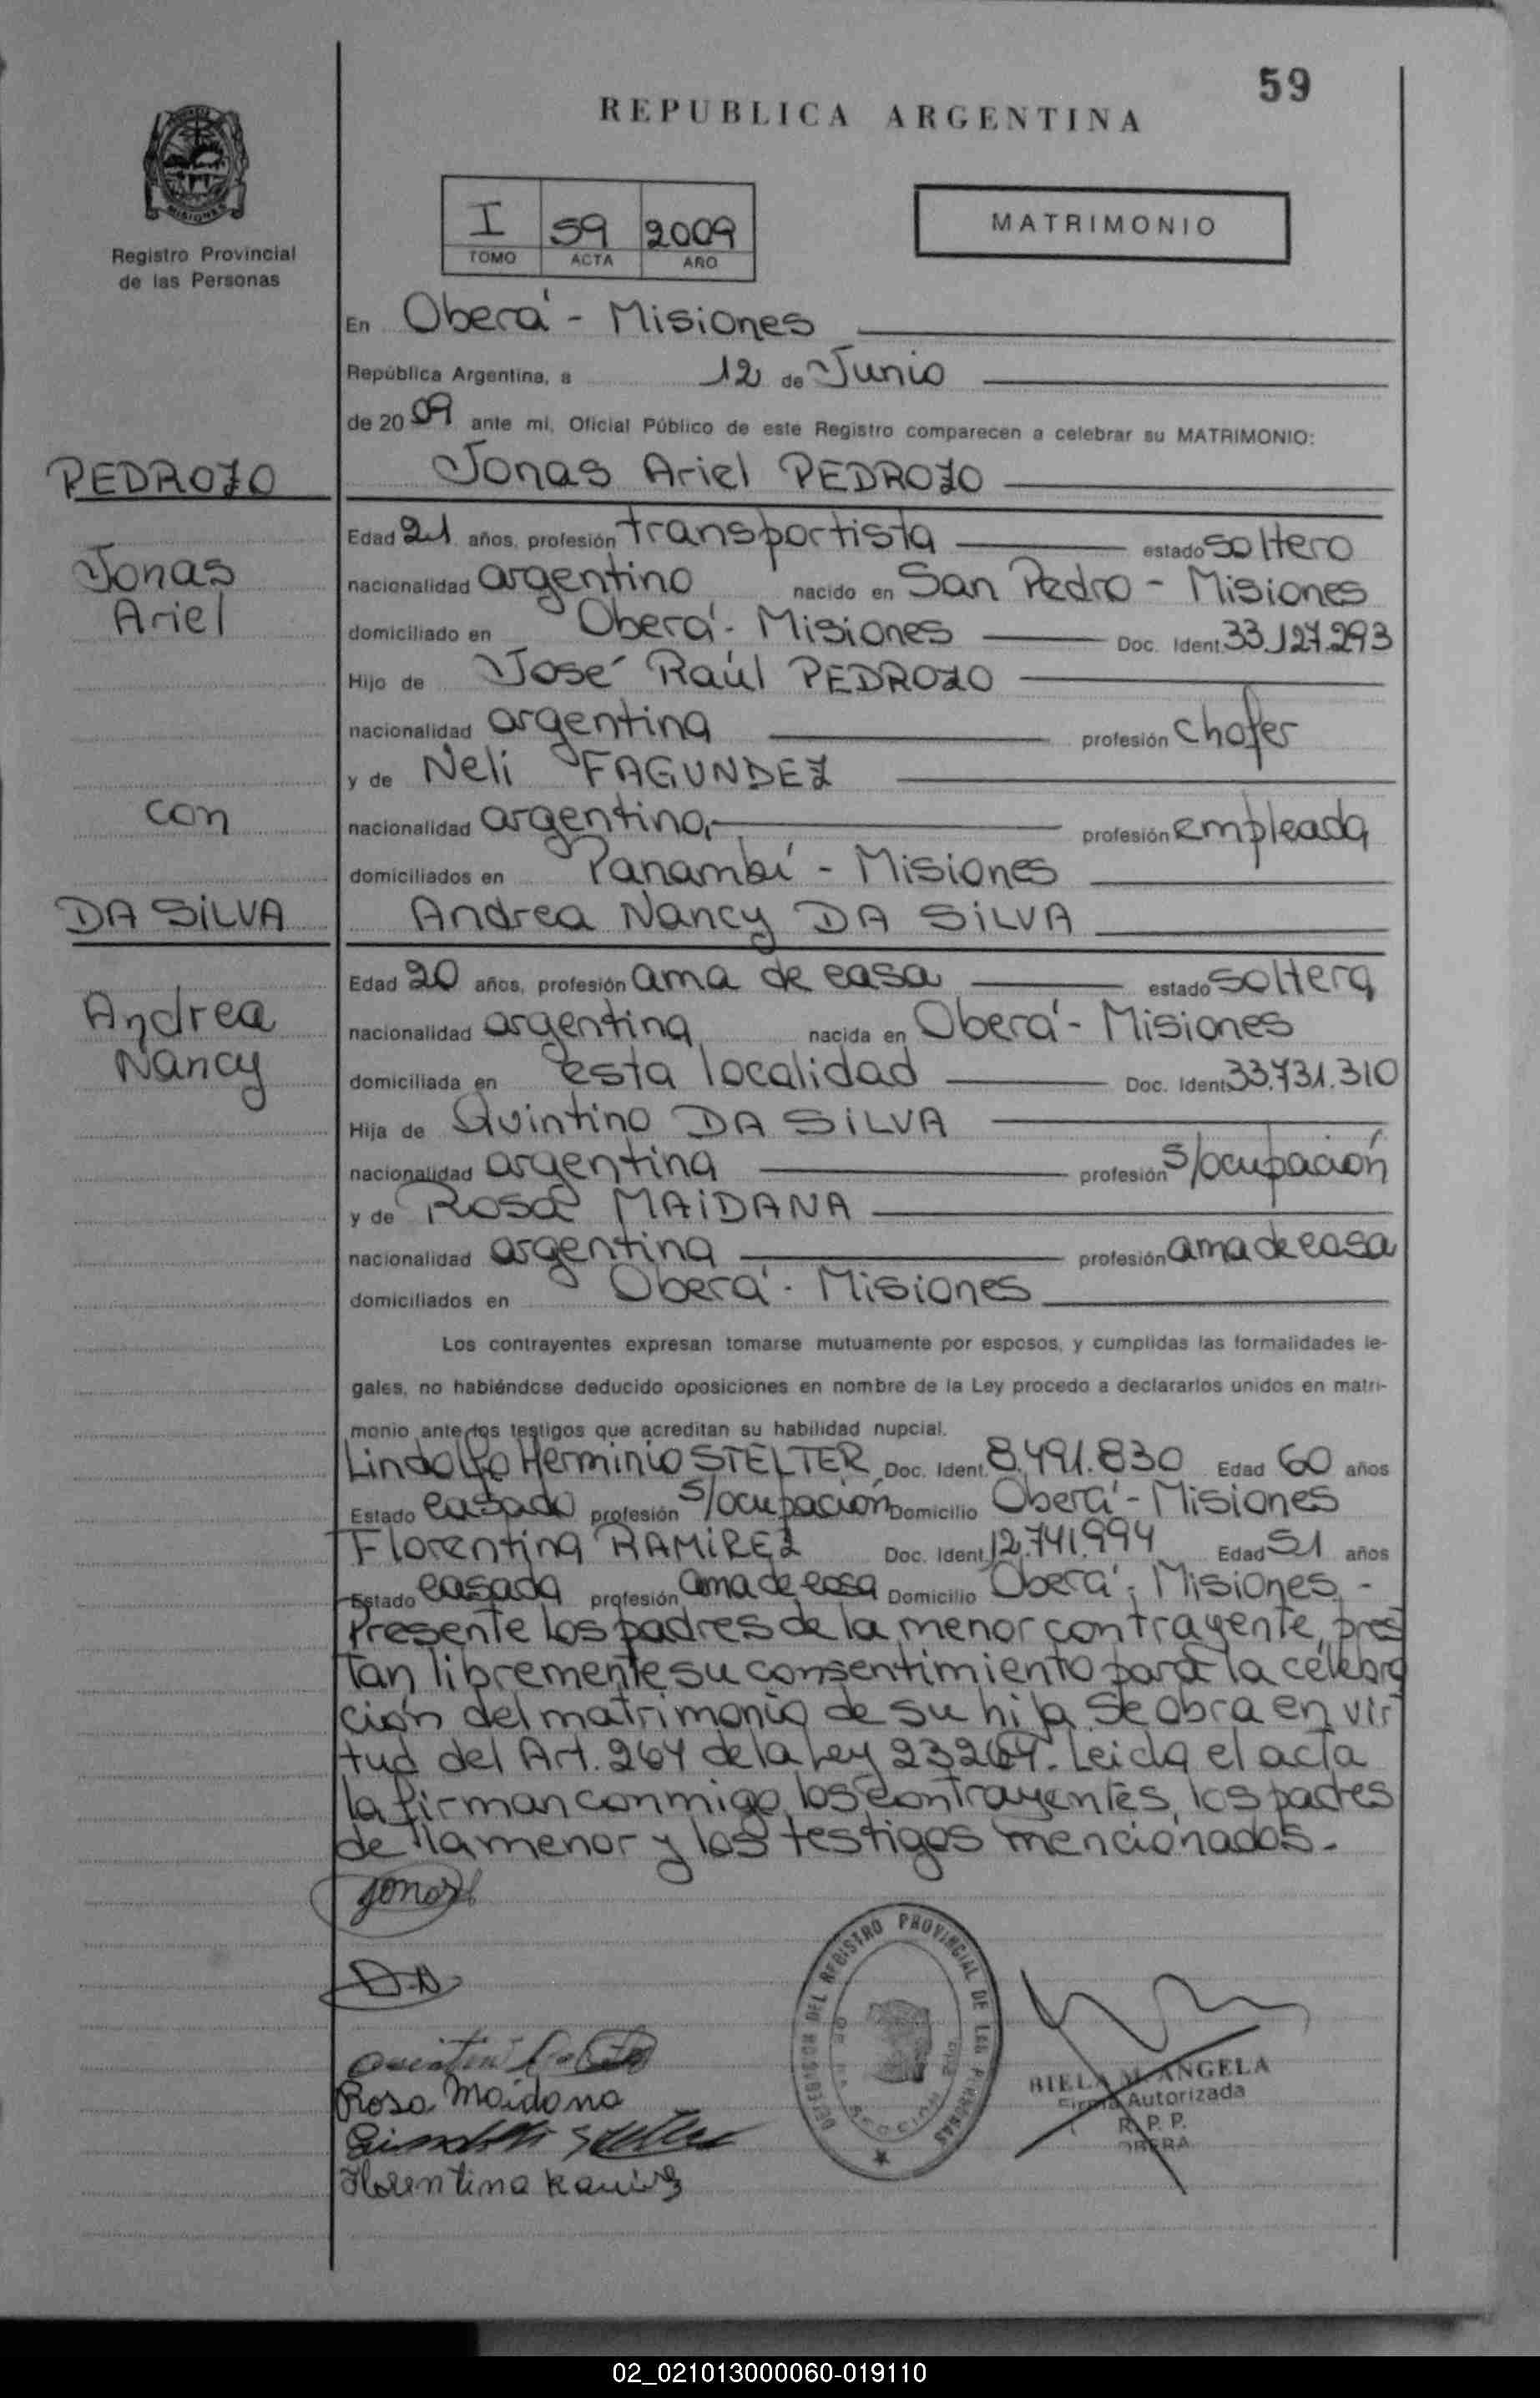 59
REPUBLICA ARGENTINA
MISIONES
Registro Provincial
de las Personas
I 59 2009
TOMO ACTA AÑO
MATRIMONIO
En Oberá - Misiones
República Argentina, a 12 de Junio
de 2009 ante mi, Oficial Público de este Registro comparecen a celebrar su MATRIMONIO:
PEDROZO
Jonas Ariel PEDROZO
Edad 21 años, profesión transportista estado soltero
Jonas
nacionalidad argentino nacido en San Pedro - Misiones
Ariel
domiciliado en Oberá - Misiones Doc. Ident. 33.127.293
Hijo de José Raúl PEDROZO
nacionalidad argentina profesión chofer
y de Neli FAGUNDEZ
con
nacionalidad argentina profesión empleada
domiciliados en Panambí - Misiones
DA SILVA
Andrea Nancy DA SILVA
Edad 20 años, profesión ama de casa estado soltera
Andrea
nacionalidad argentina nacida en Oberá - Misiones
Nancy
domiciliada en esta localidad Doc. Ident. 33.731.310
Hija de Quintino DA SILVA
nacionalidad argentina profesión s/ocupación
y de Rosa MAIDANA
nacionalidad argentina profesión ama de casa
domiciliados en Oberá - Misiones
Los contrayentes expresan tomarse mutuamente por esposos, y cumplidas las formalidades le-
gales, no habiéndose deducido oposiciones en nombre de la Ley procedo a declararlos unidos en matri-
monio ante los testigos que acreditan su habilidad nupcial.
Lindolfo Herminio STELTER Doc. Ident. 8.491.830 Edad 60 años
Estado casado profesión s/ocupación Domicilio Oberá - Misiones
Florentina RAMIREZ Doc. Ident. 12.741.994 Edad 51 años
Estado casada profesión ama de casa Domicilio Oberá - Misiones -
Presente los padres de la menor contrayente, pres
tan libremente su consentimiento para la celebra
ción del matrimonio de su hija. Se obra en vir
tud del Art. 264 de la Ley 23264. Leida el acta
la firman conmigo, los contrayentes, los padres
de la menor y los testigos mencionados.-
Jonas
D.A
Rosa Maidana
Florentina Ramirez
DEL REGISTRO PROVINCIAL DE LAS PERSONAS
BIELA M. ANGELA
Firma Autorizada
R. P. P.
OBERA
02_021013000060-019110